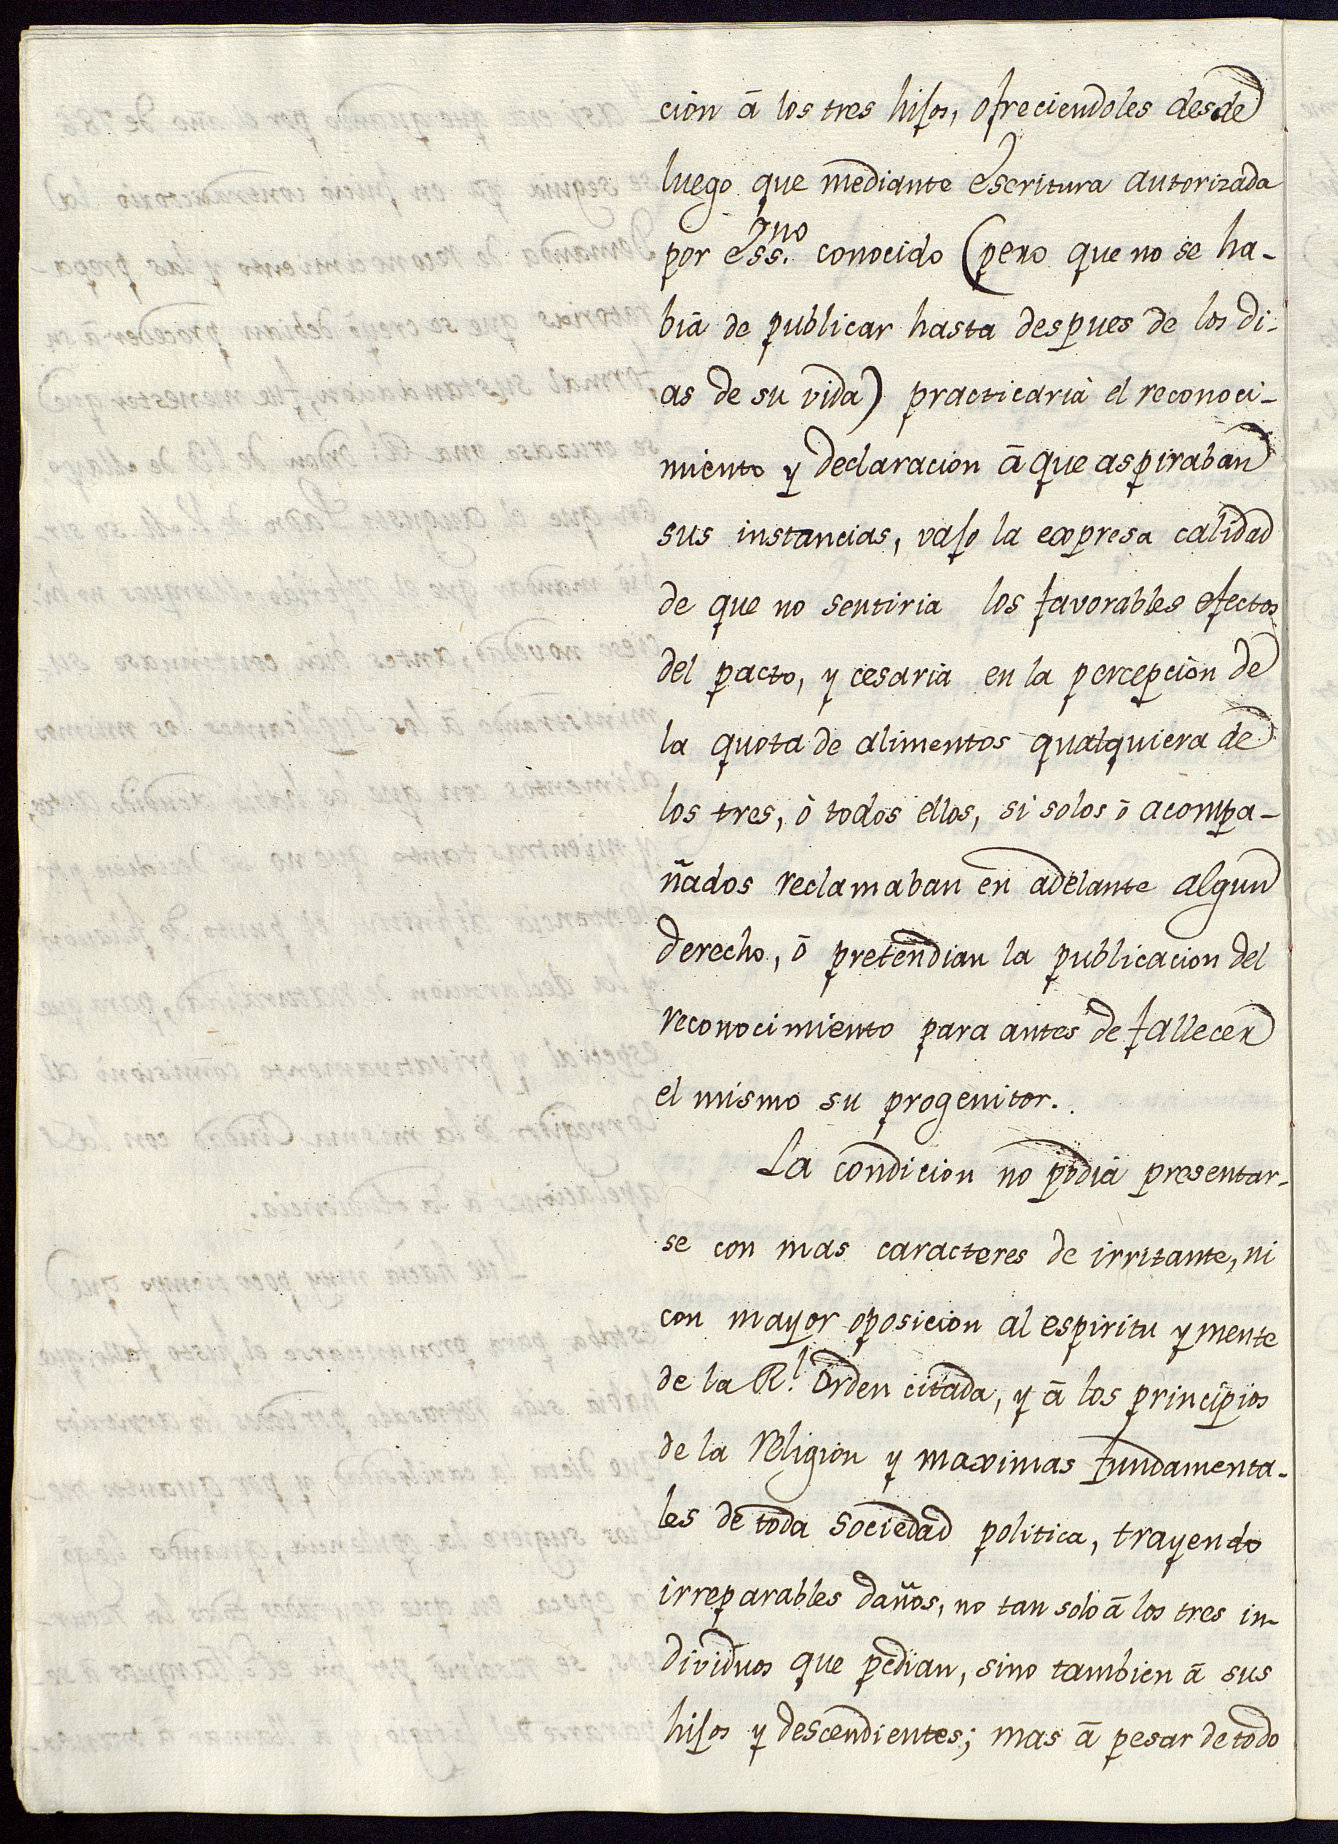 ción â los tres hijos, ofreciendoles desde
luego que mediante escritura autorizada
por Ess.no conocido (pero que no se ha-
biâ de publicar hasta despues de los di-
as de su vida) practicaria el reconoci-
miento y declaracion â que aspiraban
sus instancias, vajo la expresa calidad
de que no sentiria los favorables efectos
del pacto, y cesaria en la percepcion de
la quota de alimentos qualquiera de
los tres, ò todos ellos, si solos ô acompa-
ñados reclamaban en adelante algun
derecho, ô pretendian la publicacion del
reconocimiento para antes de fallecer
el mismo su progenitor.
La condicion no podia presentar-
se con mas caracteres de irritante, ni
con mayor oposicion al espiritu y mente
de la R.l Orden citada, y â los principios
de la religion y maximas fundamenta-
les de toda sociedad politica, trayendo
irreparables daños, no tan solo â los tres in-
dividuos que pedian, sino tambien â sus
hijos y descendientes; mas â pesar de todo